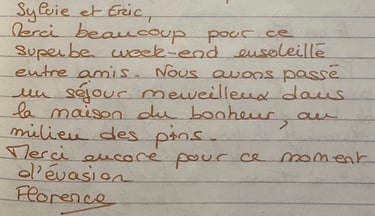 Sylvie et Eric,
Merci beaucoup pour ce
superbe week-end ensoleillé
entre amis. Nous avons passé
un séjour merveilleux dans
la maison du bonheur, au
milieu des pins.
Merci encore pour ce moment
d'évasion
Florence